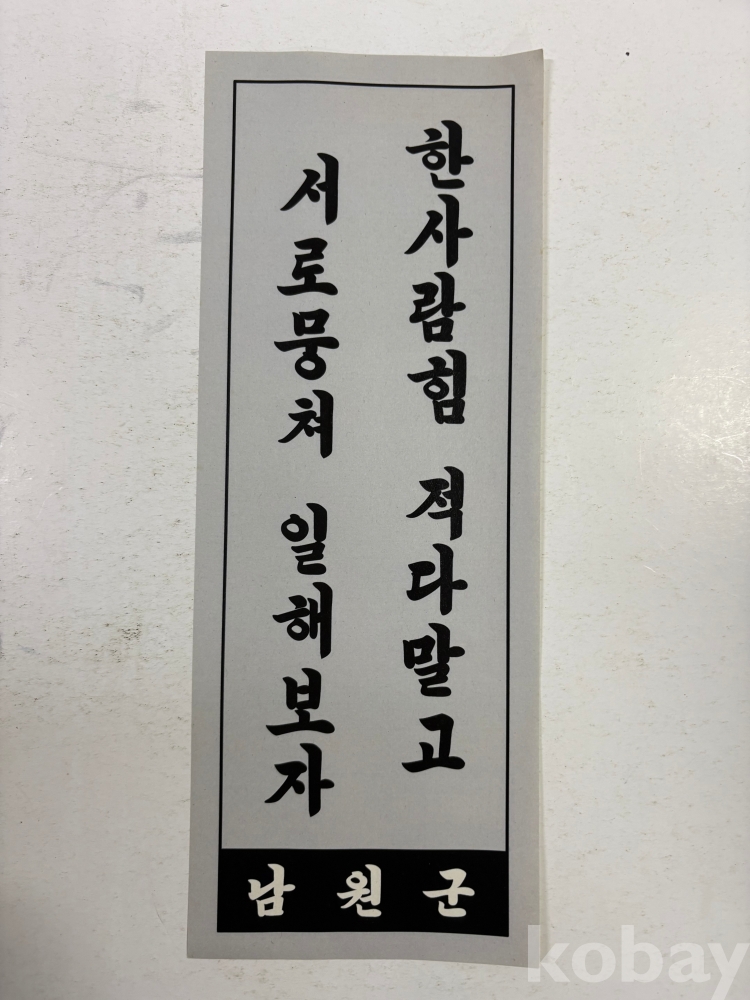 한사람힘 적다말고
서로뭉쳐 일해보자
남원군
kobay